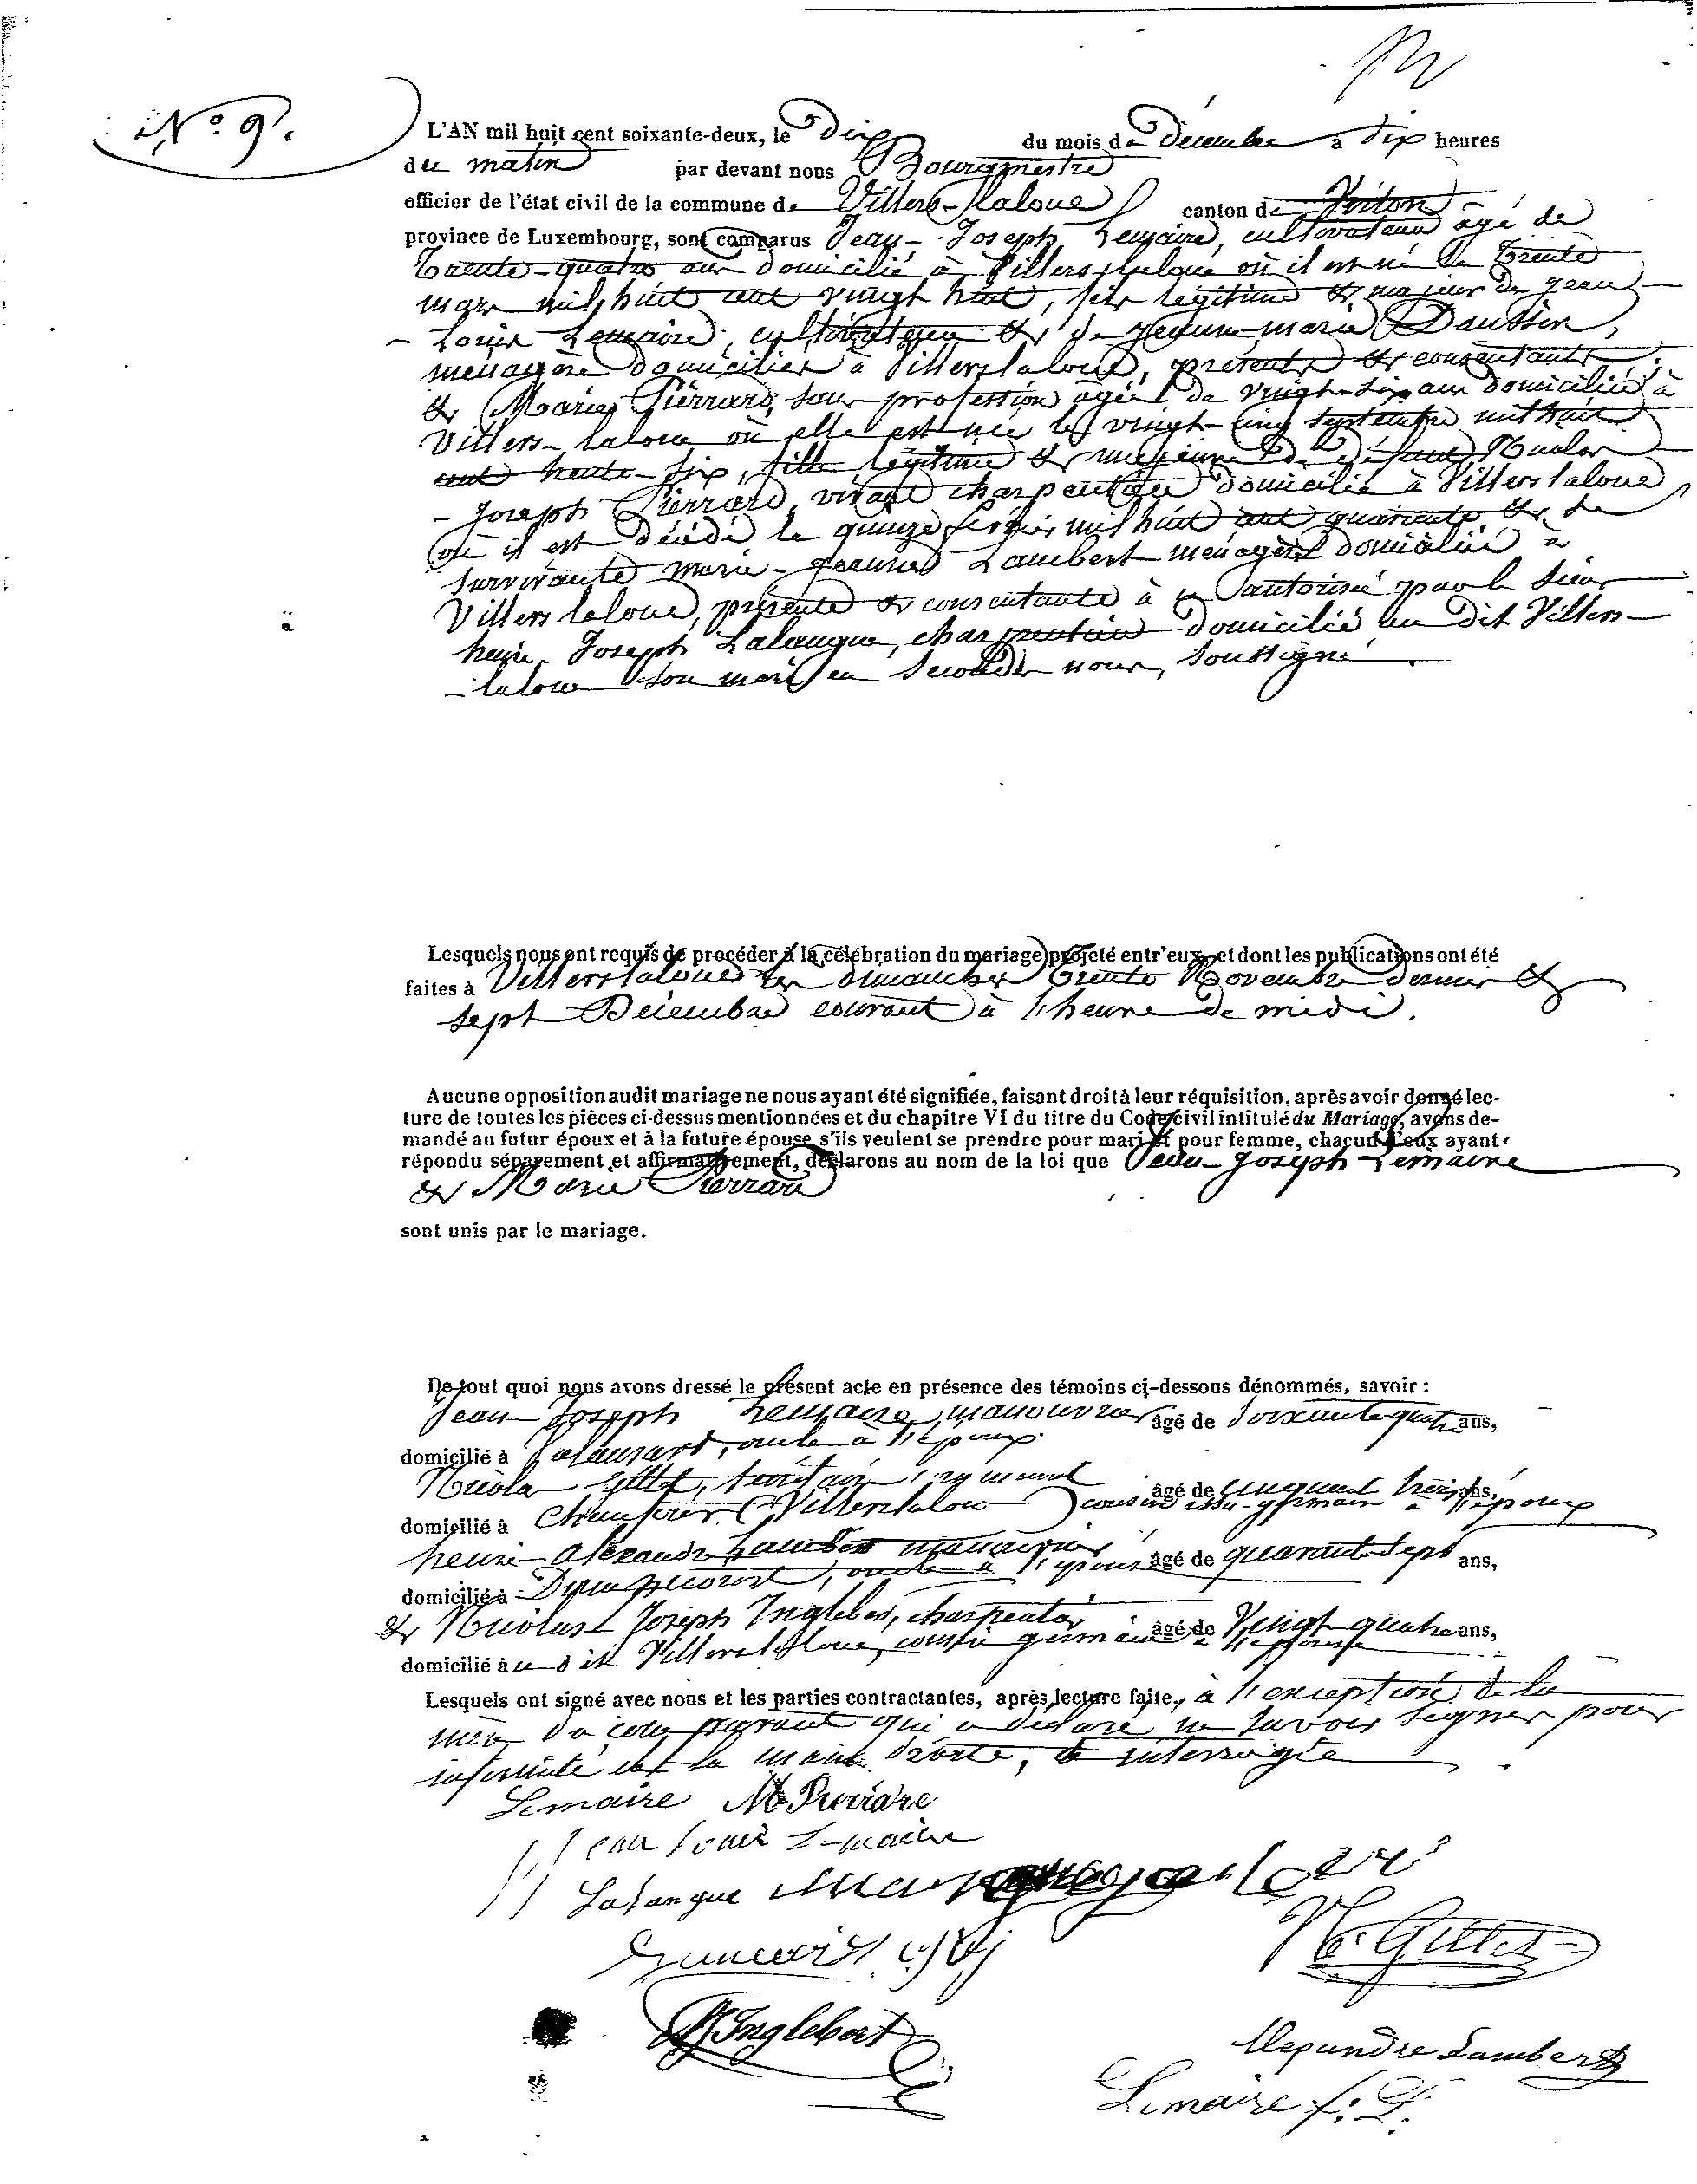 N° 9.
L'AN mil huit cent soixante-deux, le dix du mois de Décembre à dix heures
du matin par devant nous Bourgmestre
officier de l'état civil de la commune de Villers-laloue canton de Virton
province de Luxembourg, sont comparus Jean-Joseph Lemaire, cultivateur âgé de
trente-quatre ans domicilié à Villers laloue où il est né le trente
mars mil huit cent vingt huit, fils légitime & majeur de Jean
- Louis Lemaire, cultivateur & de Jeanne-Marie Daussin,
ménagère domiciliés à Villerslaloue, présents & consentants;
& Marie Pierrard, sans profession âgée de vingt-six ans domiciliée à
Villers-laloue où elle est née le vingt-cinq septembre mil huit
cent trente-six, fille légitime & majeure de défunt
- Joseph Pierrard, vivant charpentier domicilié à Villers laloue
où il est décédé le quinze février mil huit cent quarante & de
survivante Marie-Jeanne Lambert ménagère domiciliée à
Villers laloue, présente & consentante à autorisée par le sieur
henri Joseph Lalangue, charpentier domicilié au dit Villers-
-laloue son mari en secondes noces, soussigné.
Lesquels nous ont requis de procéder à la célébration du mariage projeté entr'eux, et dont les publications ont été
faites à Villerslaloue les dimanches trente Novembre dernier &
sept Décembre courant à l'heure de midi.
Aucune opposition audit mariage ne nous ayant été signifiée, faisant droit à leur réquisition, après avoir donné lec-
ture de toutes les pièces ci-dessus mentionnées et du chapitre VI du titre du Code civil intitulé du Mariage, avons de-
mandé au futur époux et à la future épouse s'ils veulent se prendre pour mari et pour femme, chacun d'eux ayant
répondu séparement et affirmativement, déclarons au nom de la loi que Jean-Joseph Lemaire
& Marie Pierrard
sont unis par le mariage.
De tout quoi nous avons dressé le présent acte en présence des témoins ci-dessous dénommés, savoir :
Jean-Joseph Lemaire, manouvrier âgé de soixante quatre ans,
domicilié à oncle à l'époux
Nicolas Gillet, secrétaire communal âgé de cinquante trois ans,
domicilié à Villerslaloue cousin issu-germain à l'époux
henri-alexandre Lambert manouvrier âgé de quarante-sept ans,
domicilié à oncle à l'épouse
& Nicolas Joseph Inglebert, charpentier âgé de Vingt quatre ans,
domicilié au dit Villerslaloue, cousin germain à l'épouse
Lesquels ont signé avec nous et les parties contractantes, après lecture faite, à l'exception de la
mère du comparant qui a déclaré ne savoir signer pour
infirmité à la main droite, de interrogée
Lemaire M Pierrare
Jean Louis Lemaire
Lalangue
N. Gillet
NJ Inglebert
Alexandre Lambert
Lemaire J: L.